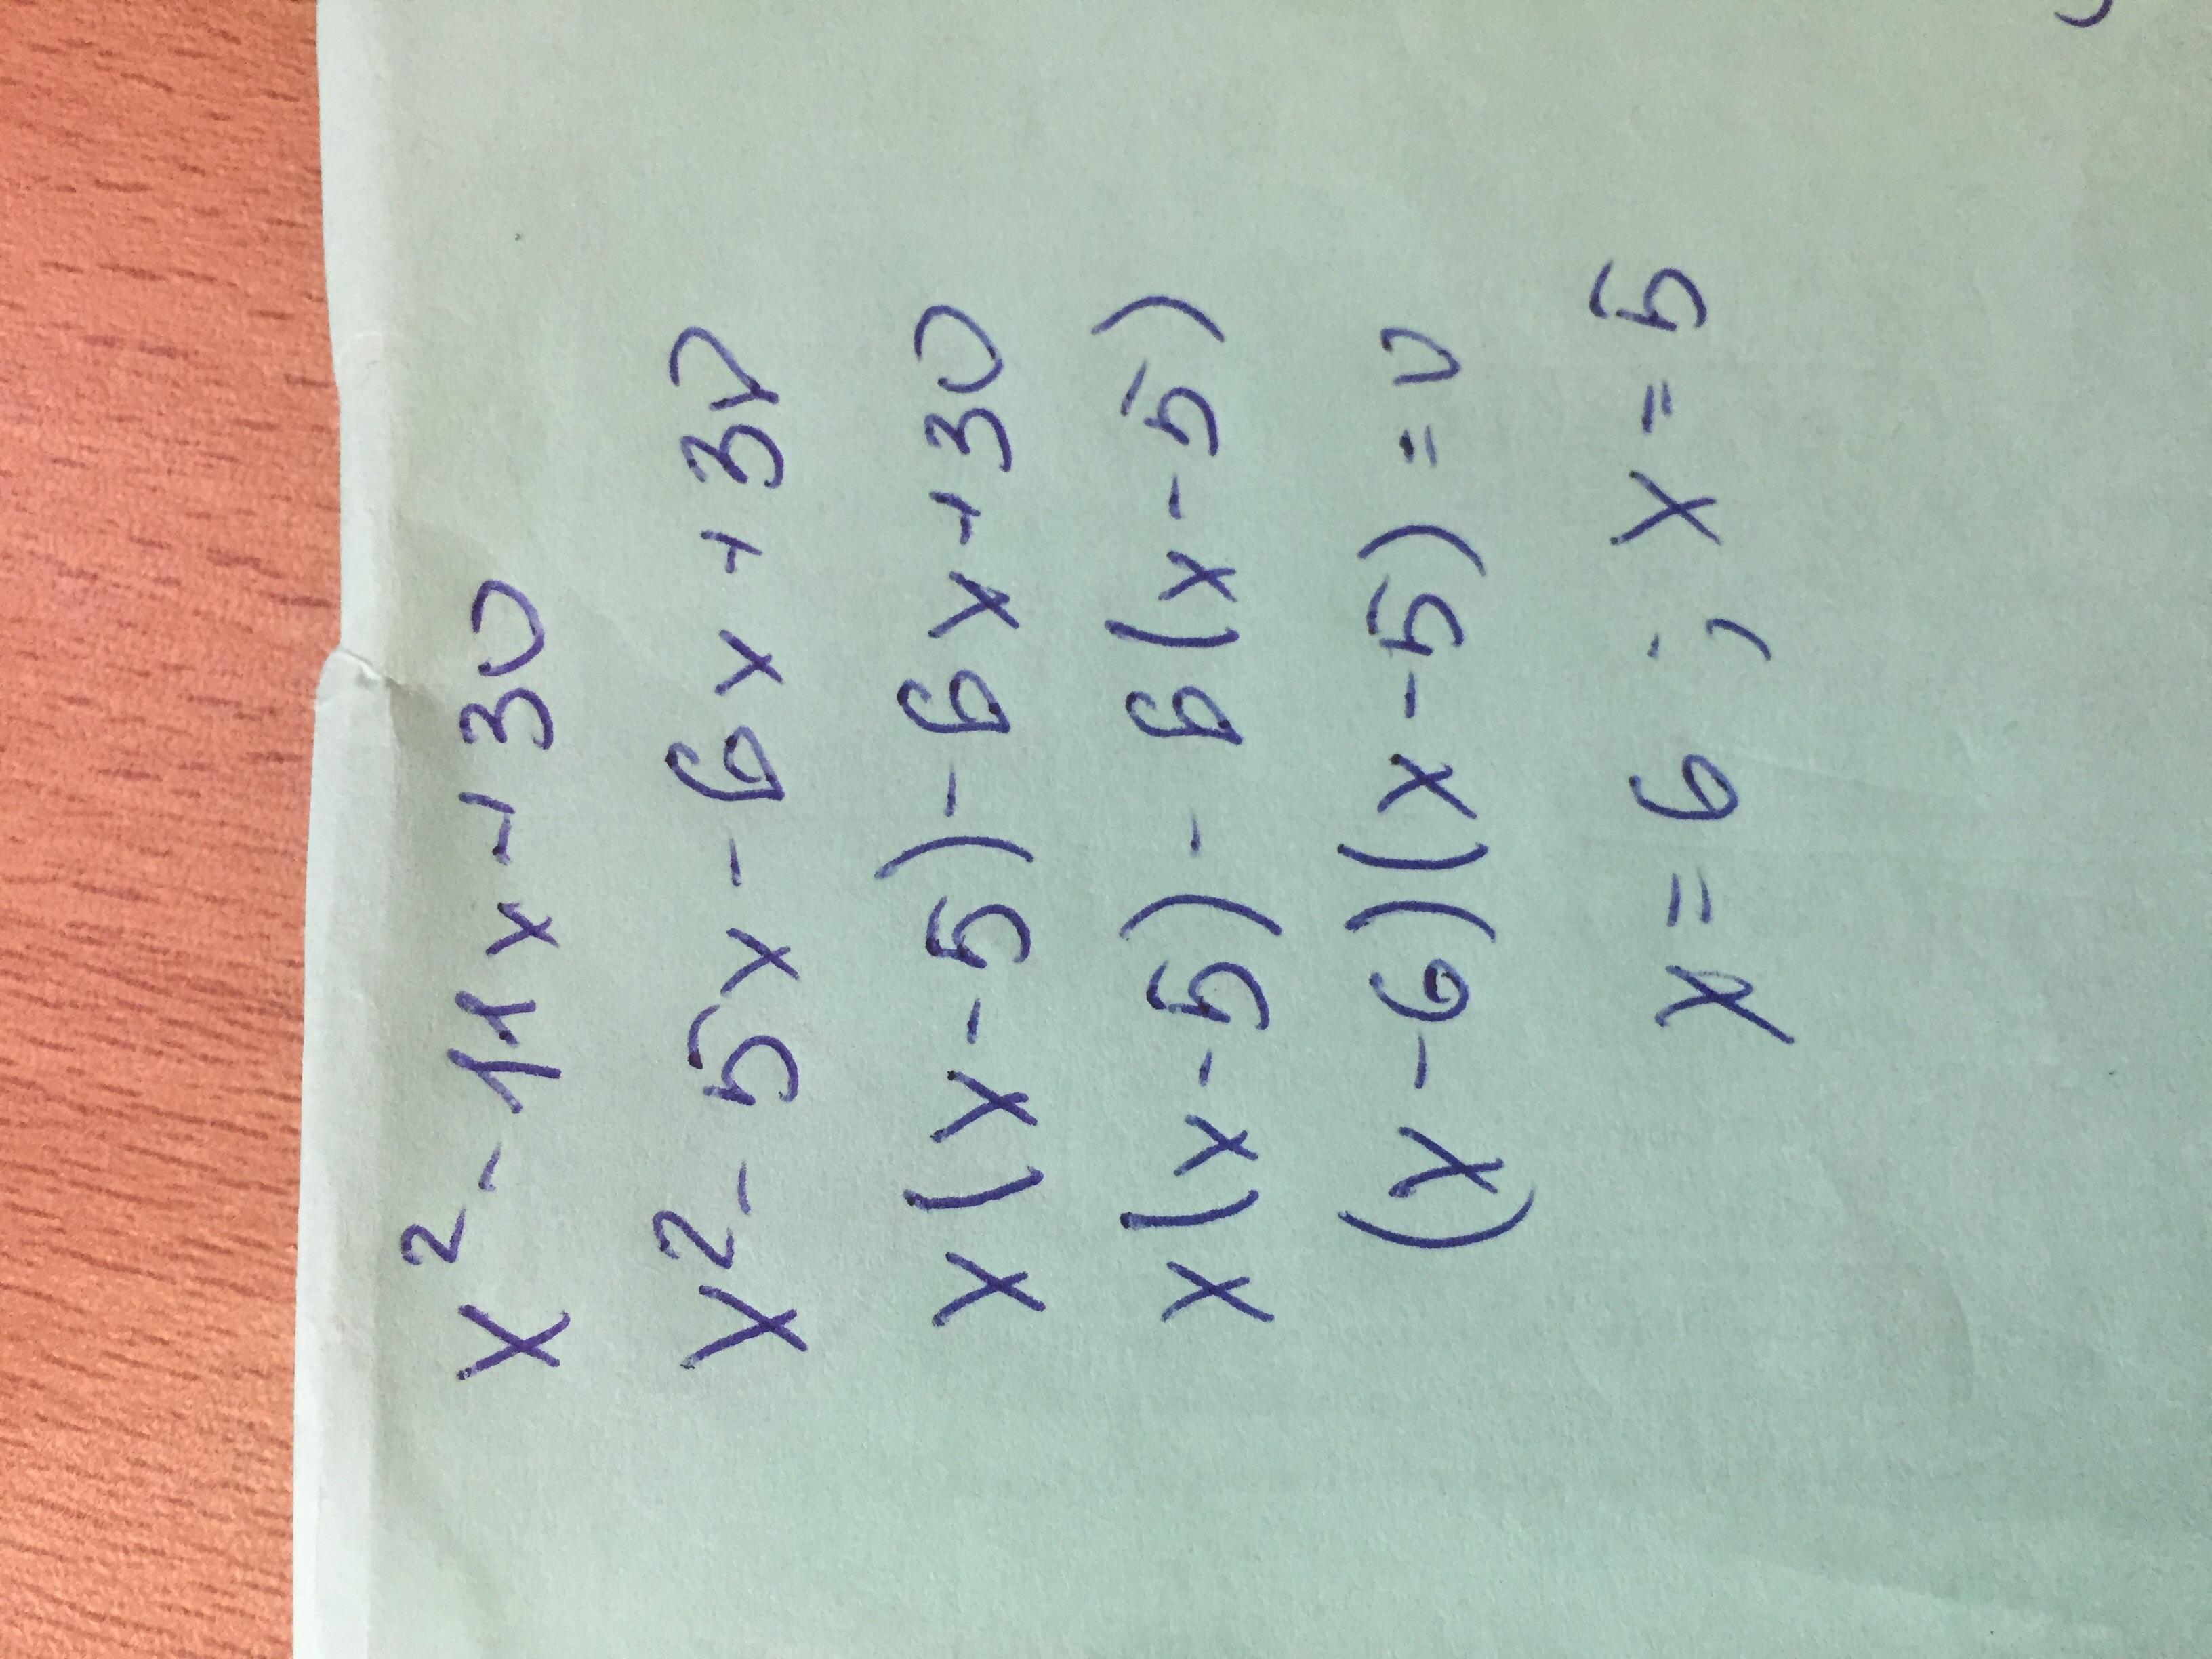 x² - 11x + 30
x² - 5x - 6x + 30
x(x - 5) - 6x + 30
x(x - 5) - 6(x - 5)
(x - 6)(x - 5) = 0
x = 6 ; x = 5